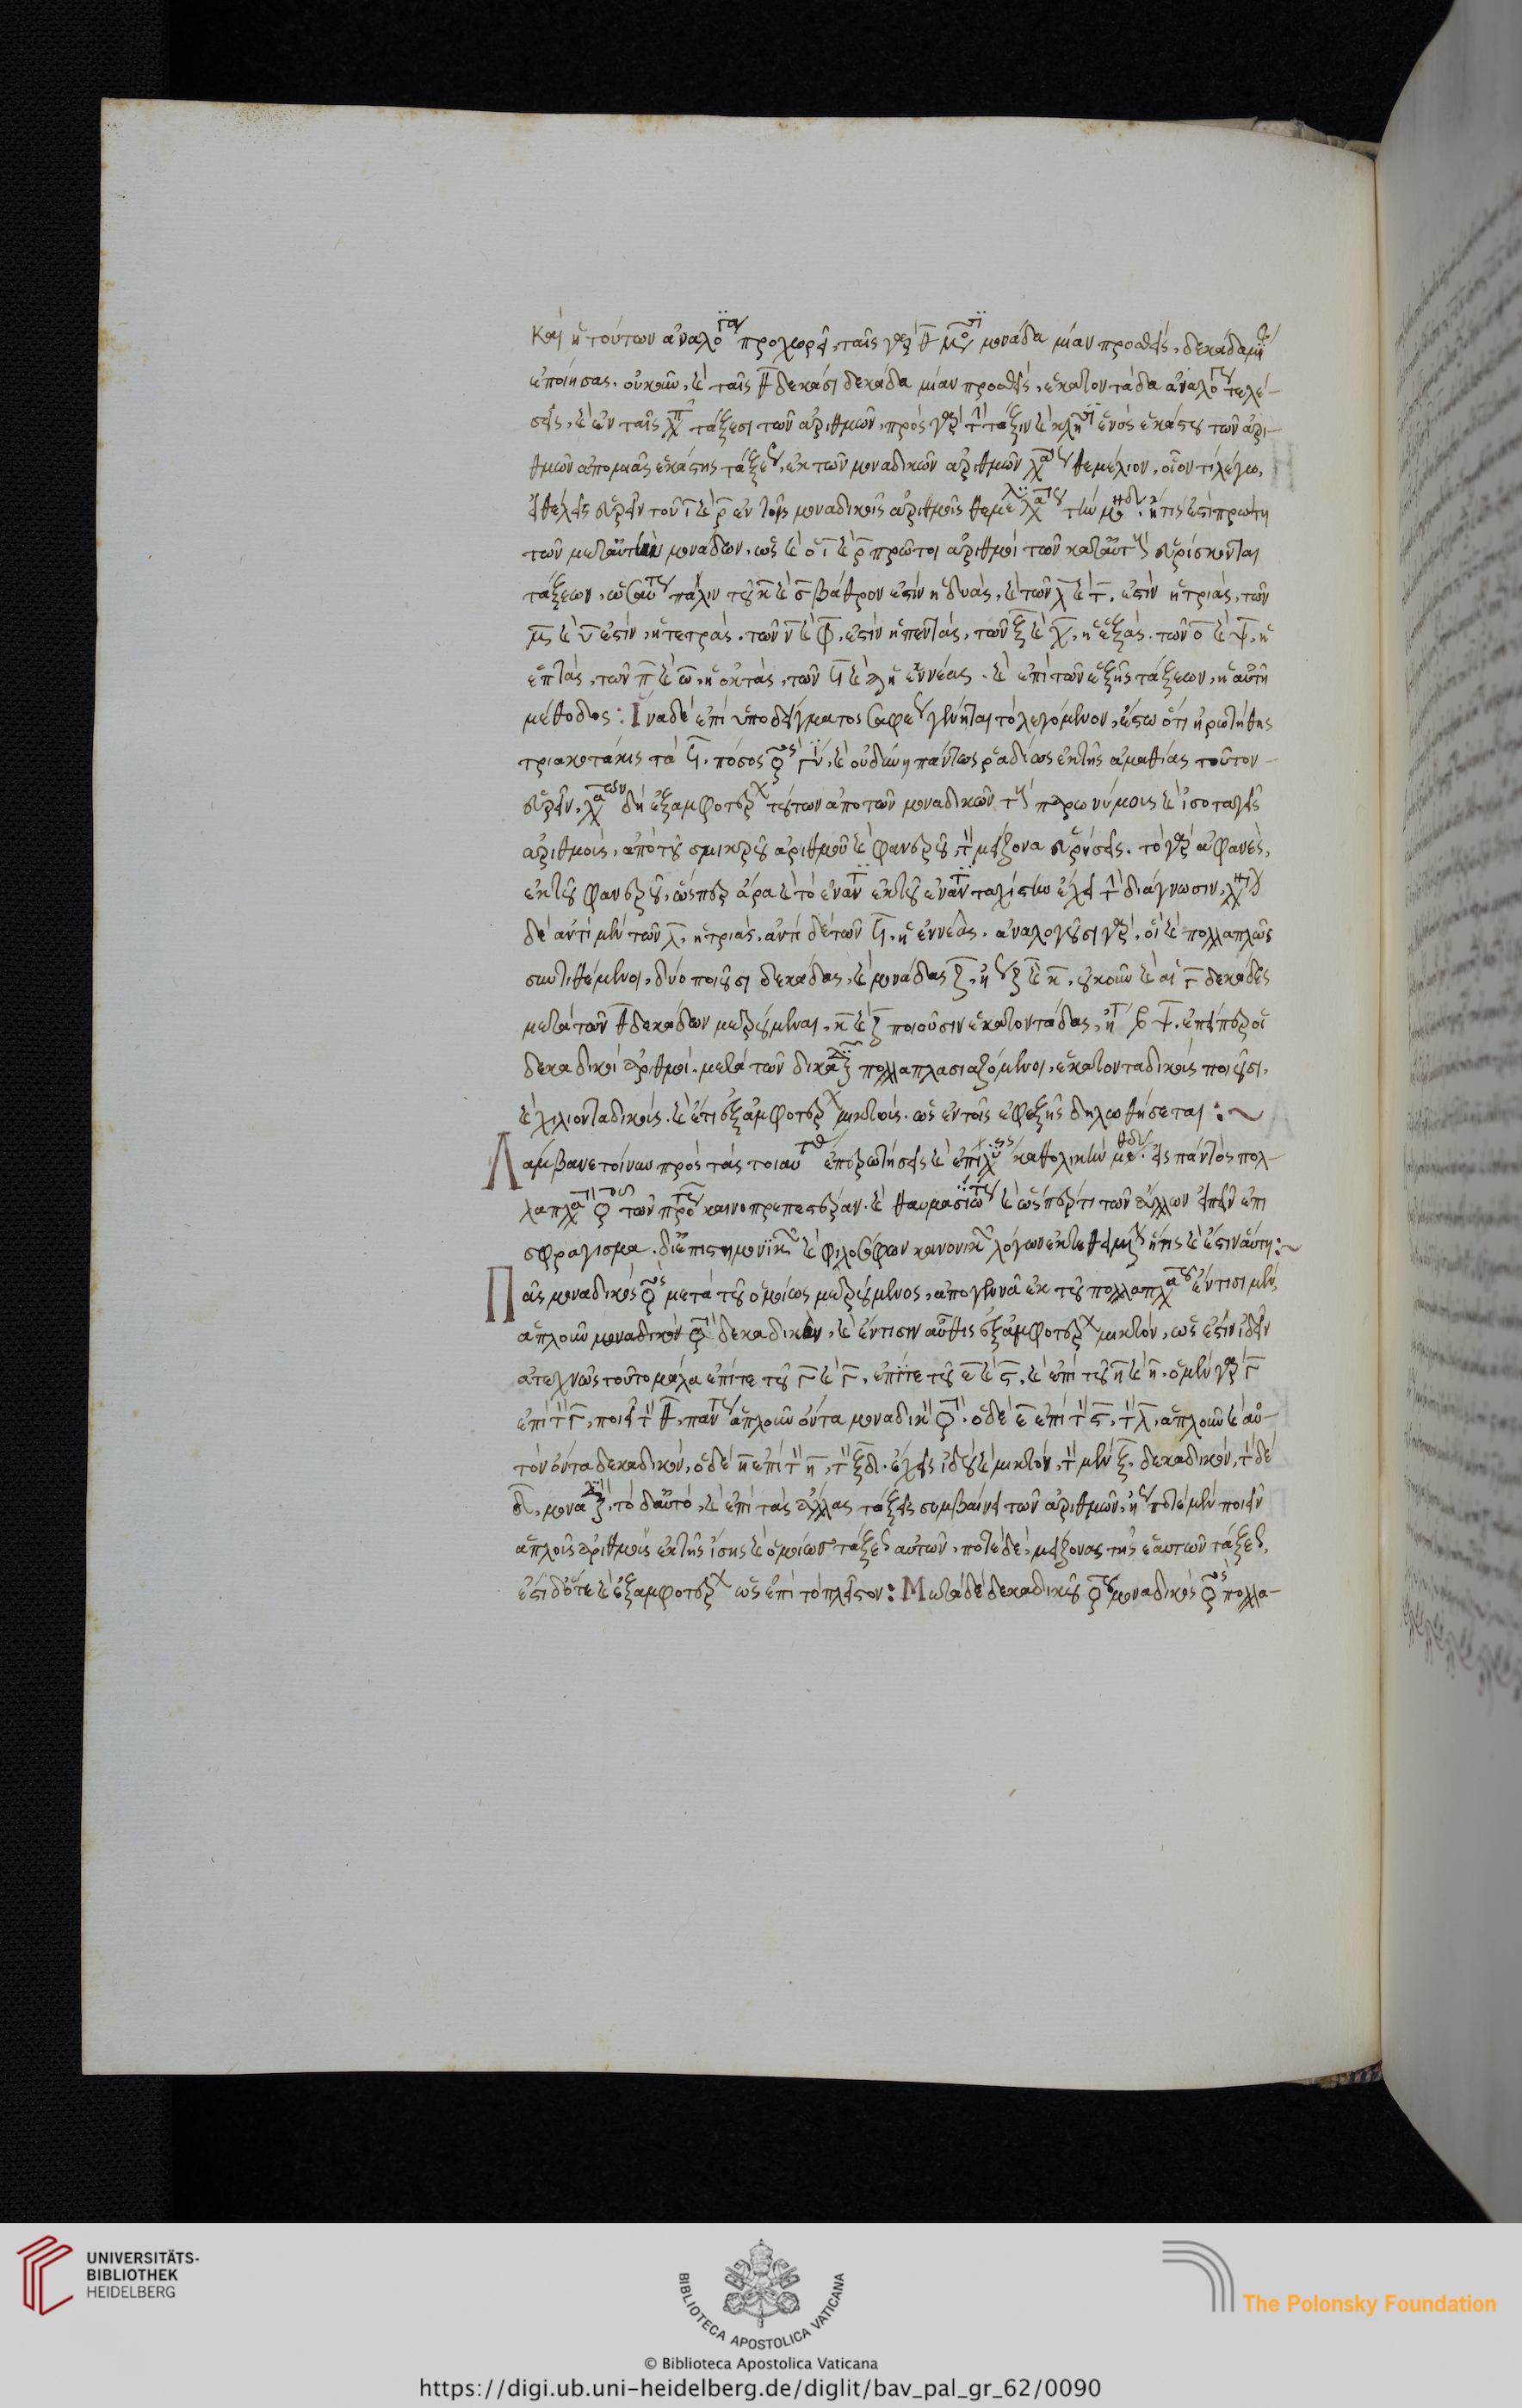 Καὶ ἡ τούτων ἀναλογία προχωρεῖ, ταῖς γὰρ θ μονάσι μονάδα μίαν προσθεὶς, δεκάδα μίαν
ἐποίησας. οὐκοῦν, καὶ ταῖς θ δεκάσι δεκάδα μίαν προσθεὶς, ἑκατοντάδα ἀναλόγως τελέ-
σεις, καὶ ἐν ταῖς τάξεσι τῶν ἀριθμῶν, πρὸς γὰρ τὴν τάξιν καὶ κλῆσιν ἑνὸς ἑκάστου τῶν ἀρι-
θμῶν ἀπὸ μιᾶς ἑκάστης τάξεως, ἐκ τῶν μοναδικῶν ἀριθμῶν θεμέλιον, οἷόν τι λέγω,
εἰ θέλεις εὑρεῖν τοῦ ι καὶ ρ ἐν τοῖς μοναδικοῖς ἀριθμοῖς θεμέλιον τὴν μονάδα. ἥτις ἐστὶ πρώτη
τῶν μετ' αὐτὴν μονάδων, ὡς καὶ ὁ ι καὶ ρ πρῶτοι ἀριθμοὶ τῶν κατ' αὐτοὺς εὑρίσκονται
τάξεων, ὡσαύτως πάλιν τοῦ κ καὶ σ βάθρον ἐστὶν ἡ δυάς, καὶ τῶν λ καὶ τ, ἐστὶν ἡ τριάς, τῶν
μ καὶ υ ἐστὶν, ἡ τετράς. τῶν ν καὶ φ, ἐστὶν ἡ πεντάς, τῶν ξ καὶ χ, ἡ ἑξάς. τῶν ο καὶ ψ, ἡ
ἑπτάς, τῶν π καὶ ω, ἡ ὀκτάς, τῶν ϟ καὶ ϡ ἡ ἐννέας. καὶ ἐπὶ τῶν ἑξῆς τάξεων, ἡ αὐτὴ
μέθοδος: Ἵνα δὲ ἐπὶ ὑποδείγματος σαφὲς γένηται τὸ λεγόμενον, ἔστω ὅτι ἠρωτήθης
τριακοντάκις τὰ ϟ, πόσος ἀριθμός γίνεται, καὶ οὐδὲν πάντως ῥαδίως ἐκ τῆς ἀμαθίας τοῦτον
εὑρεῖν, δὴ ἐξ ἀμφοτέρων τούτων ἀπὸ τῶν μοναδικῶν τοὺς παρωνύμοις καὶ ἰσοταγεῖς
ἀριθμοὺς, ἀπὸ τοῦ σμικροῦ ἀριθμοῦ καὶ φανεροῦ, τὸν μείζονα εὑρήσεις. τὸ γὰρ ἀφανὲς,
ἐκ τοῦ φανεροῦ, ὥσπερ ἄρα καὶ τὸ ἐναντίον ἐκ τοῦ ἐναντίου ταχίστην ἔχει τὴν διάγνωσιν,
δὲ ἀντὶ μὲν τῶν λ, ἡ τριάς, ἀντὶ δὲ τῶν ϟ, ἡ ἐννέας. ἀναλογοῦσι γὰρ, οἳ καὶ πολλαπλῶς
συντιθέμενοι, δύο ποιοῦσι δεκάδας, καὶ μονάδας ζ, ἤγουν ζ καὶ κ, οὐκοῦν καὶ αἱ γ δεκάδες
μετὰ τῶν θ δεκάδων μετρούμεναι, κ καὶ ζ ποιοῦσιν ἑκατοντάδας, ἤτοι β ψ. ἐπείπερ οἱ
δεκαδικοὶ ἀριθμοὶ. μετὰ τῶν δεκαδικῶν πολλαπλασιαζόμενοι, ἑκατονταδικοὺς ποιοῦσι,
καὶ χιλιονταδικούς. καὶ ἔτι ἐξ ἀμφοτέρων μικτούς. ὡς ἐν τοῖς ἐφεξῆς δηλωθήσεται:~
Λάμβανε τοίνυν πρὸς τὰς τοιαύτας ἐπερωτήσεις καὶ ἐπιλύσεις καθολικὴν μέθοδον. εἰς παντὸς πολ-
λαπλασιασμοῦ τῶν πρώτων καινοπρεπεστέραν. καὶ θαυμασιωτέραν καὶ ὥσπερ τι τῶν ἄλλων εἰπεῖν ἐπι
σφράγισμα. δι' ἐπιστημονικῶν καὶ φιλοσόφων κανονικῶν λόγων ἐκτεθειμένην ἥτις καὶ ἔστιν αὕτη:~
Πᾶς μοναδικὸς ἀριθμὸς μετὰ τοῦ ὁμοίως μετρούμενος, ἀπογεννᾷ ἐκ τοῦ πολλαπλασιασμοῦ ἔν τισι μὲν,
ἁπλοῦν μοναδικὸν ἀριθμὸν δεκαδικὸν, καὶ ἔν τισιν αὖθις ἐξ ἀμφοτέρων μικτόν, ὡς ἔστιν ἰδεῖν
ἀτεχνῶς τοῦτο μάλα ἐπί τε τοῦ γ καὶ γ, ἐπί τε τοῦ ε καὶ ς, καὶ ἐπὶ τοῦ η καὶ η. ὁ μὲν γὰρ γ
ἐπὶ τὸν γ, ποιεῖ τὸν θ, πάντως ἁπλοῦν ὄντα μοναδικὸν ἀριθμόν. ὁ δὲ ε ἐπὶ τὸν ς, τὸν λ, ἁπλοῦν καὶ αὐ-
τὸν ὄντα δεκαδικόν, ὁ δὲ η ἐπὶ τὸν η, τὸν ξδ. ἔχεις ἰδοὺ καὶ μικτὸν, τὸν μὲν ξ, δεκαδικόν, τὸν δὲ
δ, μοναδικόν, τὸ δ' αὐτὸ, καὶ ἐπὶ τὰς ἄλλας τάξεις συμβαίνει τῶν ἀριθμῶν, ἤγουν ποτὲ μὲν ποιεῖν
ἁπλοῦς ἀριθμοὺς ἐκ τῆς ἴσης καὶ ὁμοίως τάξεως αὐτῶν, ποτὲ δὲ, μείζονας τῆς ἑαυτῶν τάξεως,
ἔστι δ' ὅτε καὶ ἐξ ἀμφοτέρων ὡς ἐπὶ τὸ πλεῖστον: Μετὰ δὲ δεκαδικοῦ ἀριθμοῦ μοναδικὸς ἀριθμὸς πολλα-
UNIVERSITÄTS-
BIBLIOTHEK
HEIDELBERG
BIBLIOTECA APOSTOLICA VATICANA
The Polonsky Foundation
© Biblioteca Apostolica Vaticana
https://digi.ub.uni-heidelberg.de/diglit/bav_pal_gr_62/0090